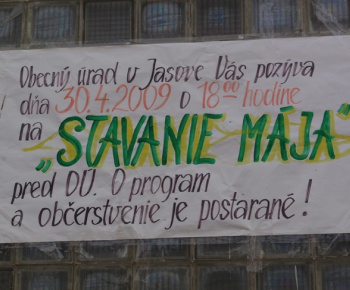 Obecný úrad v Jasove Vás pozýva
dňa 30.4.2009 o 18⁰⁰ hodine
na „STAVANIE MÁJA“
pred OÚ. O program
a občerstvenie je postarané!